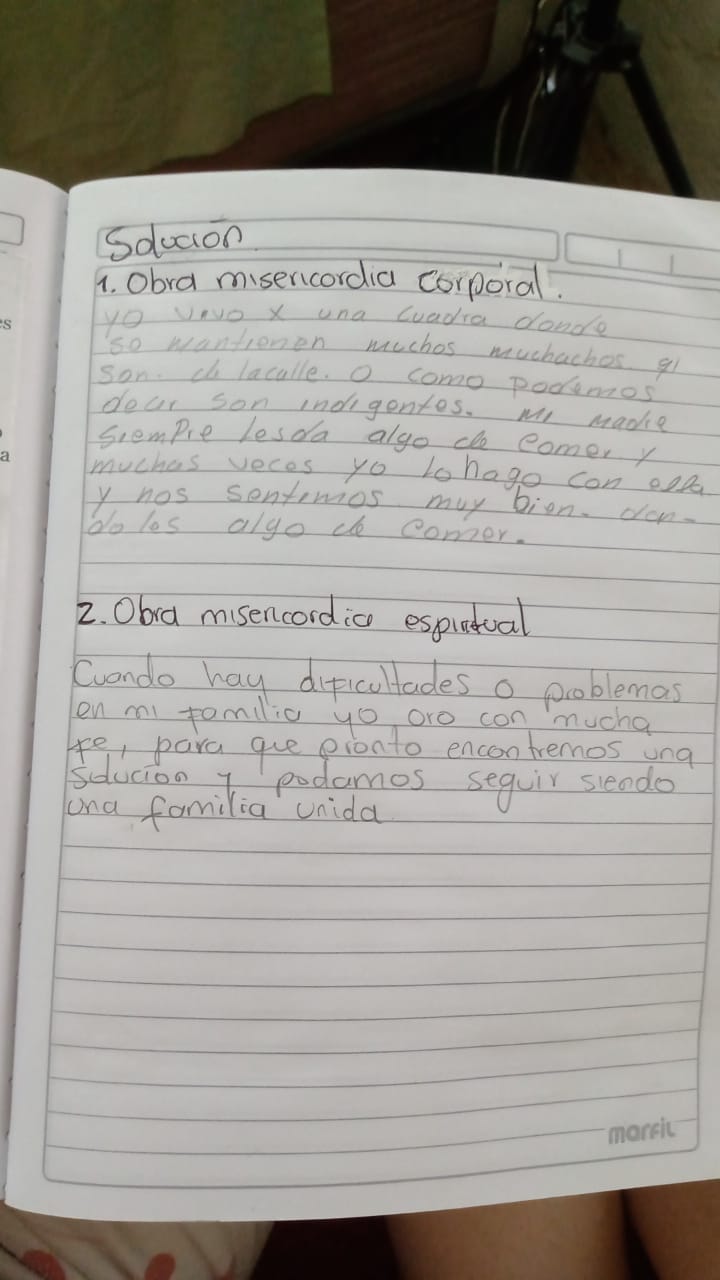 Solución
1. Obra misericordia corporal.
yo vivo x una cuadra donde
se mantienen muchos muchachos q
son. de lacalle. O como podemos
decir son indigentes. Mi madre
siempre lesda algo de comer y
muchas veces yo lo hago con ella
y nos sentimos muy bien. dan-
do les algo de comer.
2. Obra misericordia espiritual
Cuando hay dificultades o problemas
en mi familia yo oro con mucha
fe, para que pronto encontremos una
solucion y podamos seguir siendo
una familia unida
marfil
es
a